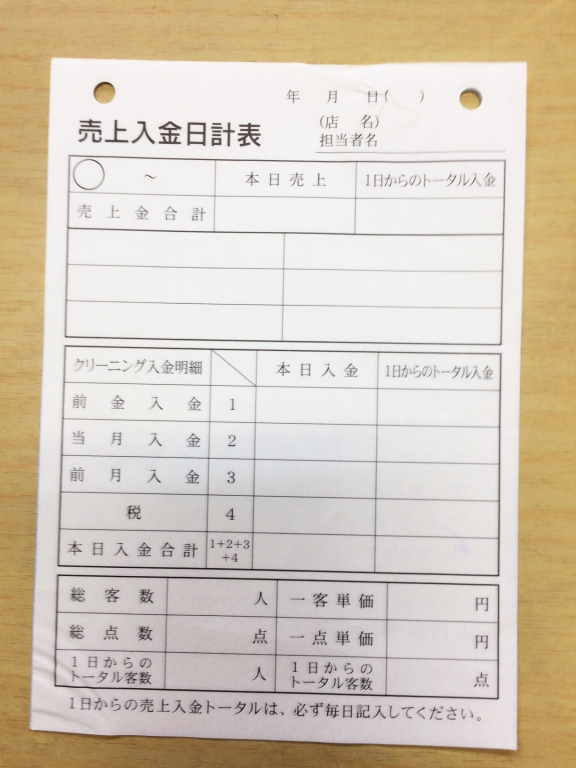 年 月 日( )
売上入金日計表
(店 名)
担当者名
～ 本日売上 1日からのトータル入金
売上金合計
クリーニング入金明細 本日入金 1日からのトータル入金
前金入金 1
当月入金 2
前月入金 3
税 4
本日入金合計 1+2+3+4
総客数 人 一客単価 円
総点数 点 一点単価 円
1日からのトータル客数 人 1日からのトータル客数 点
1日からの売上入金トータルは、必ず毎日記入してください。